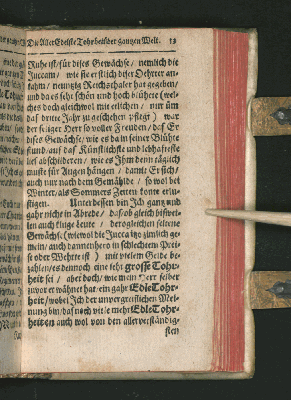 Die Aller Edelste Tohrheit der gantzen Welt. 13
Ruhe ist / für dises Gewächse / nemlich die
Juccam / wie sie erstlich diser Oehrter an-
kahm / neuntzig Reichsthaler hat gegeben /
und da es sehr schön und hoch blühete (wel-
ches doch gleichwol mir erlichen / nur üm
das dritte Jahr zu geschehen pflegt) war
der sel iger Herr so voller Freuden / daß Er
dises Gewächse / wie es da in seiner Blühte
stund / auf das Künstlichste und lebhafteste
lies abschilderen / wie es Ihm denn täglich
muste für Augen hängen / damit Er sich /
auch nur nach dem Gemählde / so wol bei
Winter / als Sommers Zeiten konte erlu-
stigen. Unterdessen bin Ich gantz und
gahr nicht in Abrede / daß ob gleich bißwei-
len auch einige Leute / dergleichen seltene
Gewächse (wiewol die Jucca itzo zimlich ge-
mein / auch dannenhero in schlechtem Prei-
se oder Wehrte ist) mit vielem Gelde be-
zahlen / es dennoch eine sehr grosse Tohr-
heit sei / aber doch / wie mein Herr selber
zuvor erwähnet hat / ein gahr Edle Tohr-
heit / wobei Ich der unvorgreiflichen Mei-
nung bin / daß noch viele mehr Edle Tohr-
heiten auch wol von den allerverständig-
sten